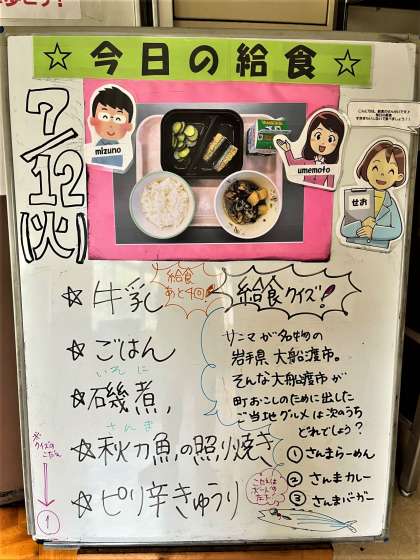 ☆ 今日の給食 ☆
7/12(火)
mizuno
umemoto
せお
☆ 牛乳
給食
あと4回!
☆ ごはん
いそに
☆ 磯煮
さんま
☆ 秋刀魚の照り焼き
☆ ピリ辛きゅうり
給食クイズ!
サンマが名物の
岩手県 大船渡市。
そんな大船渡市が
町おこしのために出した
ご当地グルメは次のうち
どれでしょう?
① さんまらーめん
② さんまカレー
③ さんまバーガー
※
クイズの
こたえ
①